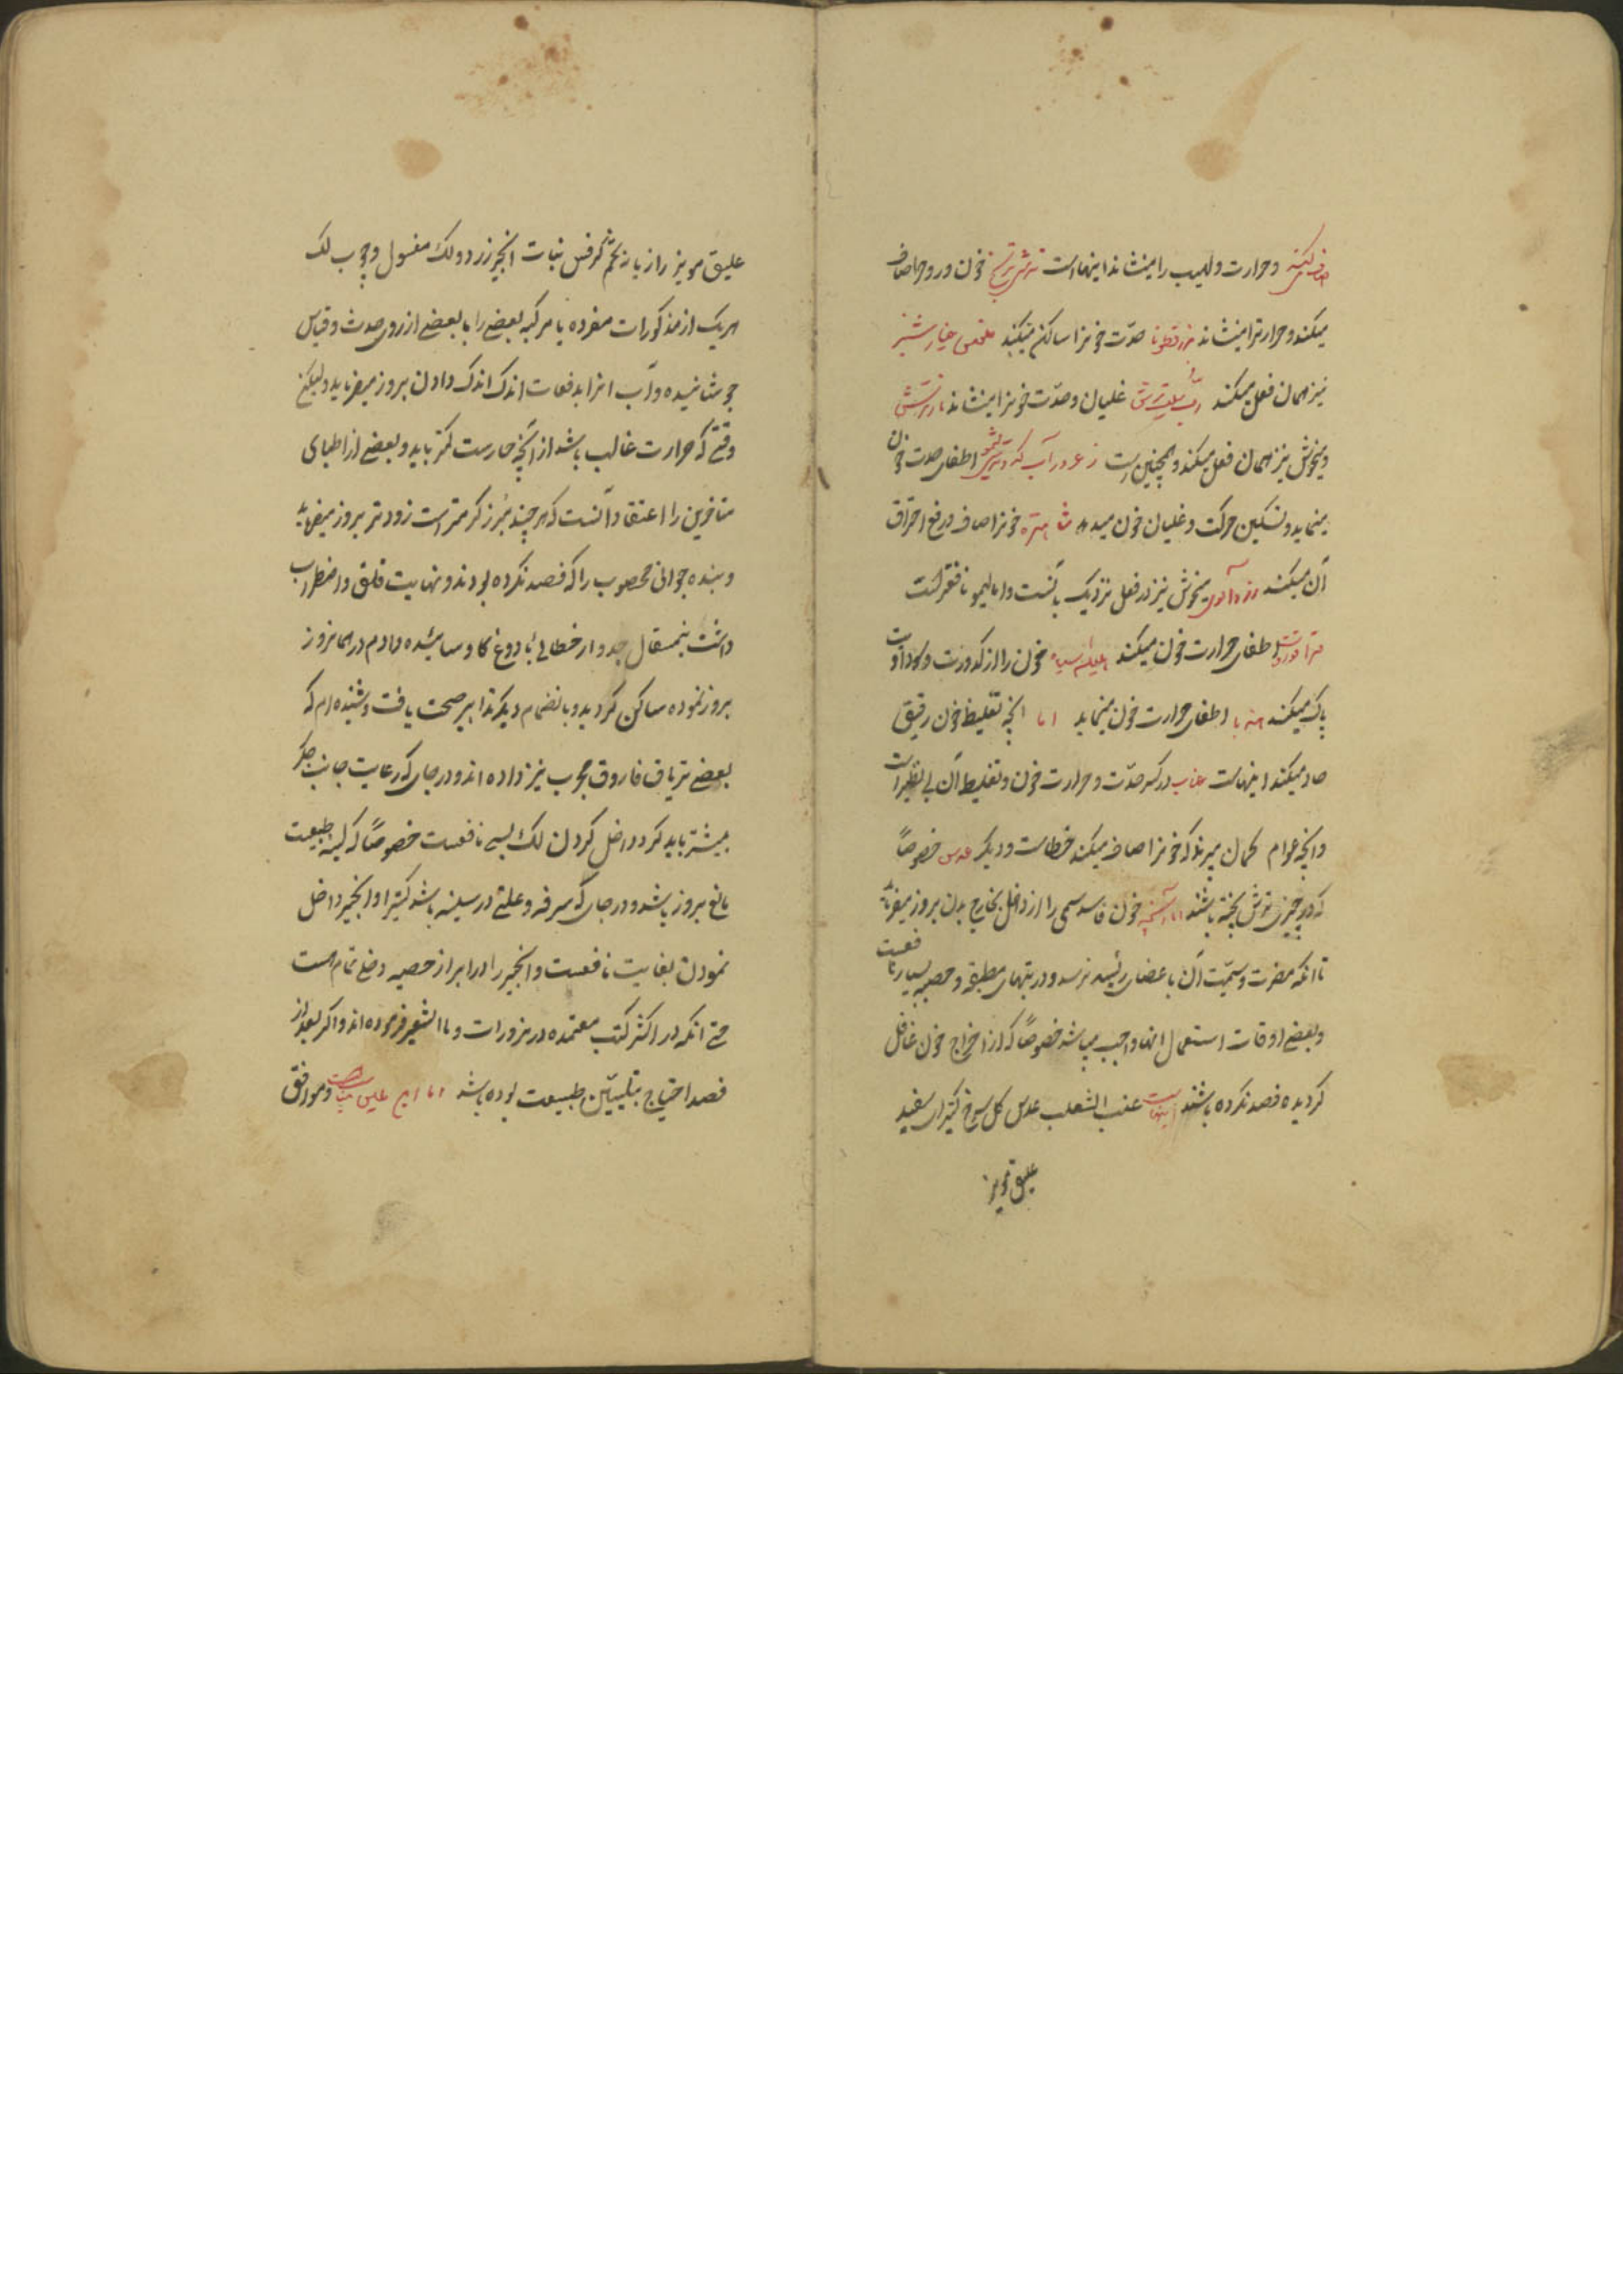 صاف کننده و حرارت و لهیب را مینشاند اینهاست ترشی ترنج خون و روح را صاف
میکند و حرارترا مینشاند بزرقطونا حدّت خونرا ساکن میکند مغز خیار شنبر
نیز همان فعل میکند ربّ ریباس ترش غلیان و حدّت خونرا مینشاند نار ترش
و میخوش نیز همان فعل میکند و همچنین است زعرور آب لیمو اطفای حدت خون
مینماید و تسکین حرکت و غلیان خون میدهد شاهتره خونرا صاف و رفع احتراق
آن میکند زردآلوی میخوش نیز در فعل نزدیک بآنست و اما لیمو نافعتر است
اطفای حرارت خون میکند هلیله سیاه خون را از کدورت و سوداویت
پاک میکند هندبا اطفای حرارت خون مینماید اما آنچه تغلیظ خون رقیق
حاد میکند اینهاست عناب در کسر حدّت و حرارت خون و تغلیظ آن بی نظیر است
و آنچه عوام گمان میبرند که خونرا صاف میکند خطاست و دیگر عدس خصوصاً
که در چیزی ترش پخته باشند اما آنچه خون فاسد سمی را از داخل بخارج بدن بروز میفرماید
تا آنکه مضرت و سمّیت آن باعضای رئیسه نرسد و در تبهای مطبقه و حصبه بسیار نافعست
و بعضی اوقات استعمال آنها واجب میباشد خصوصاً که از اخراج خون غافل
گردیده فصد نکرده باشند اینهاست عنب الثعلب عدس گل سرخ کتیرای سفید
علیق مویز
علیق مویز رازیانه تخم کرفس نبات انجیر زرد و لک مغسول و چوب لک
هر یک از مذکورات مفرده یا مرکبه بعضی را با بعضی از روی حدث و قیاس
جوشانیده و آب آنرا بدفعات اندک اندک دادن بروز میفرماید ولیکن
وقتی که حرارت غالب باشد از آنچه حارست کمتر باید و بعضی از اطبای
متاخرین را اعتقاد آنست که هر چند مُبرز گرمتر است زودتر بروز میفرماید
و بنده جوانی محصوب را که فصد نکرده بودند و نهایت قلق و اضطراب
داشت نیمثقال جدوار خطائی با دوغ گاو سائیده دادم در همانروز
بروز نموده ساکن گردید و بانضمام دیگر تدابیر صحت یافت و شنیده‌ام که
بعضی تریاق فاروق مجرب نیز داده‌اند و در جای که رعایت جانب جگر
بیشتر باید کرد داخل کردن لک بسی نافعست خصوصاً که لینه طبیعت
مانع بروز باشد و در جای که سرفه و علتی در سینه باشد کتیرا و انجیر داخل
نمودن بغایت نافعست و انجیر را در ابراز حصبه دخل تمام است
حتی آنکه در اکثر کتب معتمده در بزورات و ماالشعیر فرموده‌اند و اگر بعد از
فصد احتیاج بتلیین طبیعت بوده باشد اما و موافق